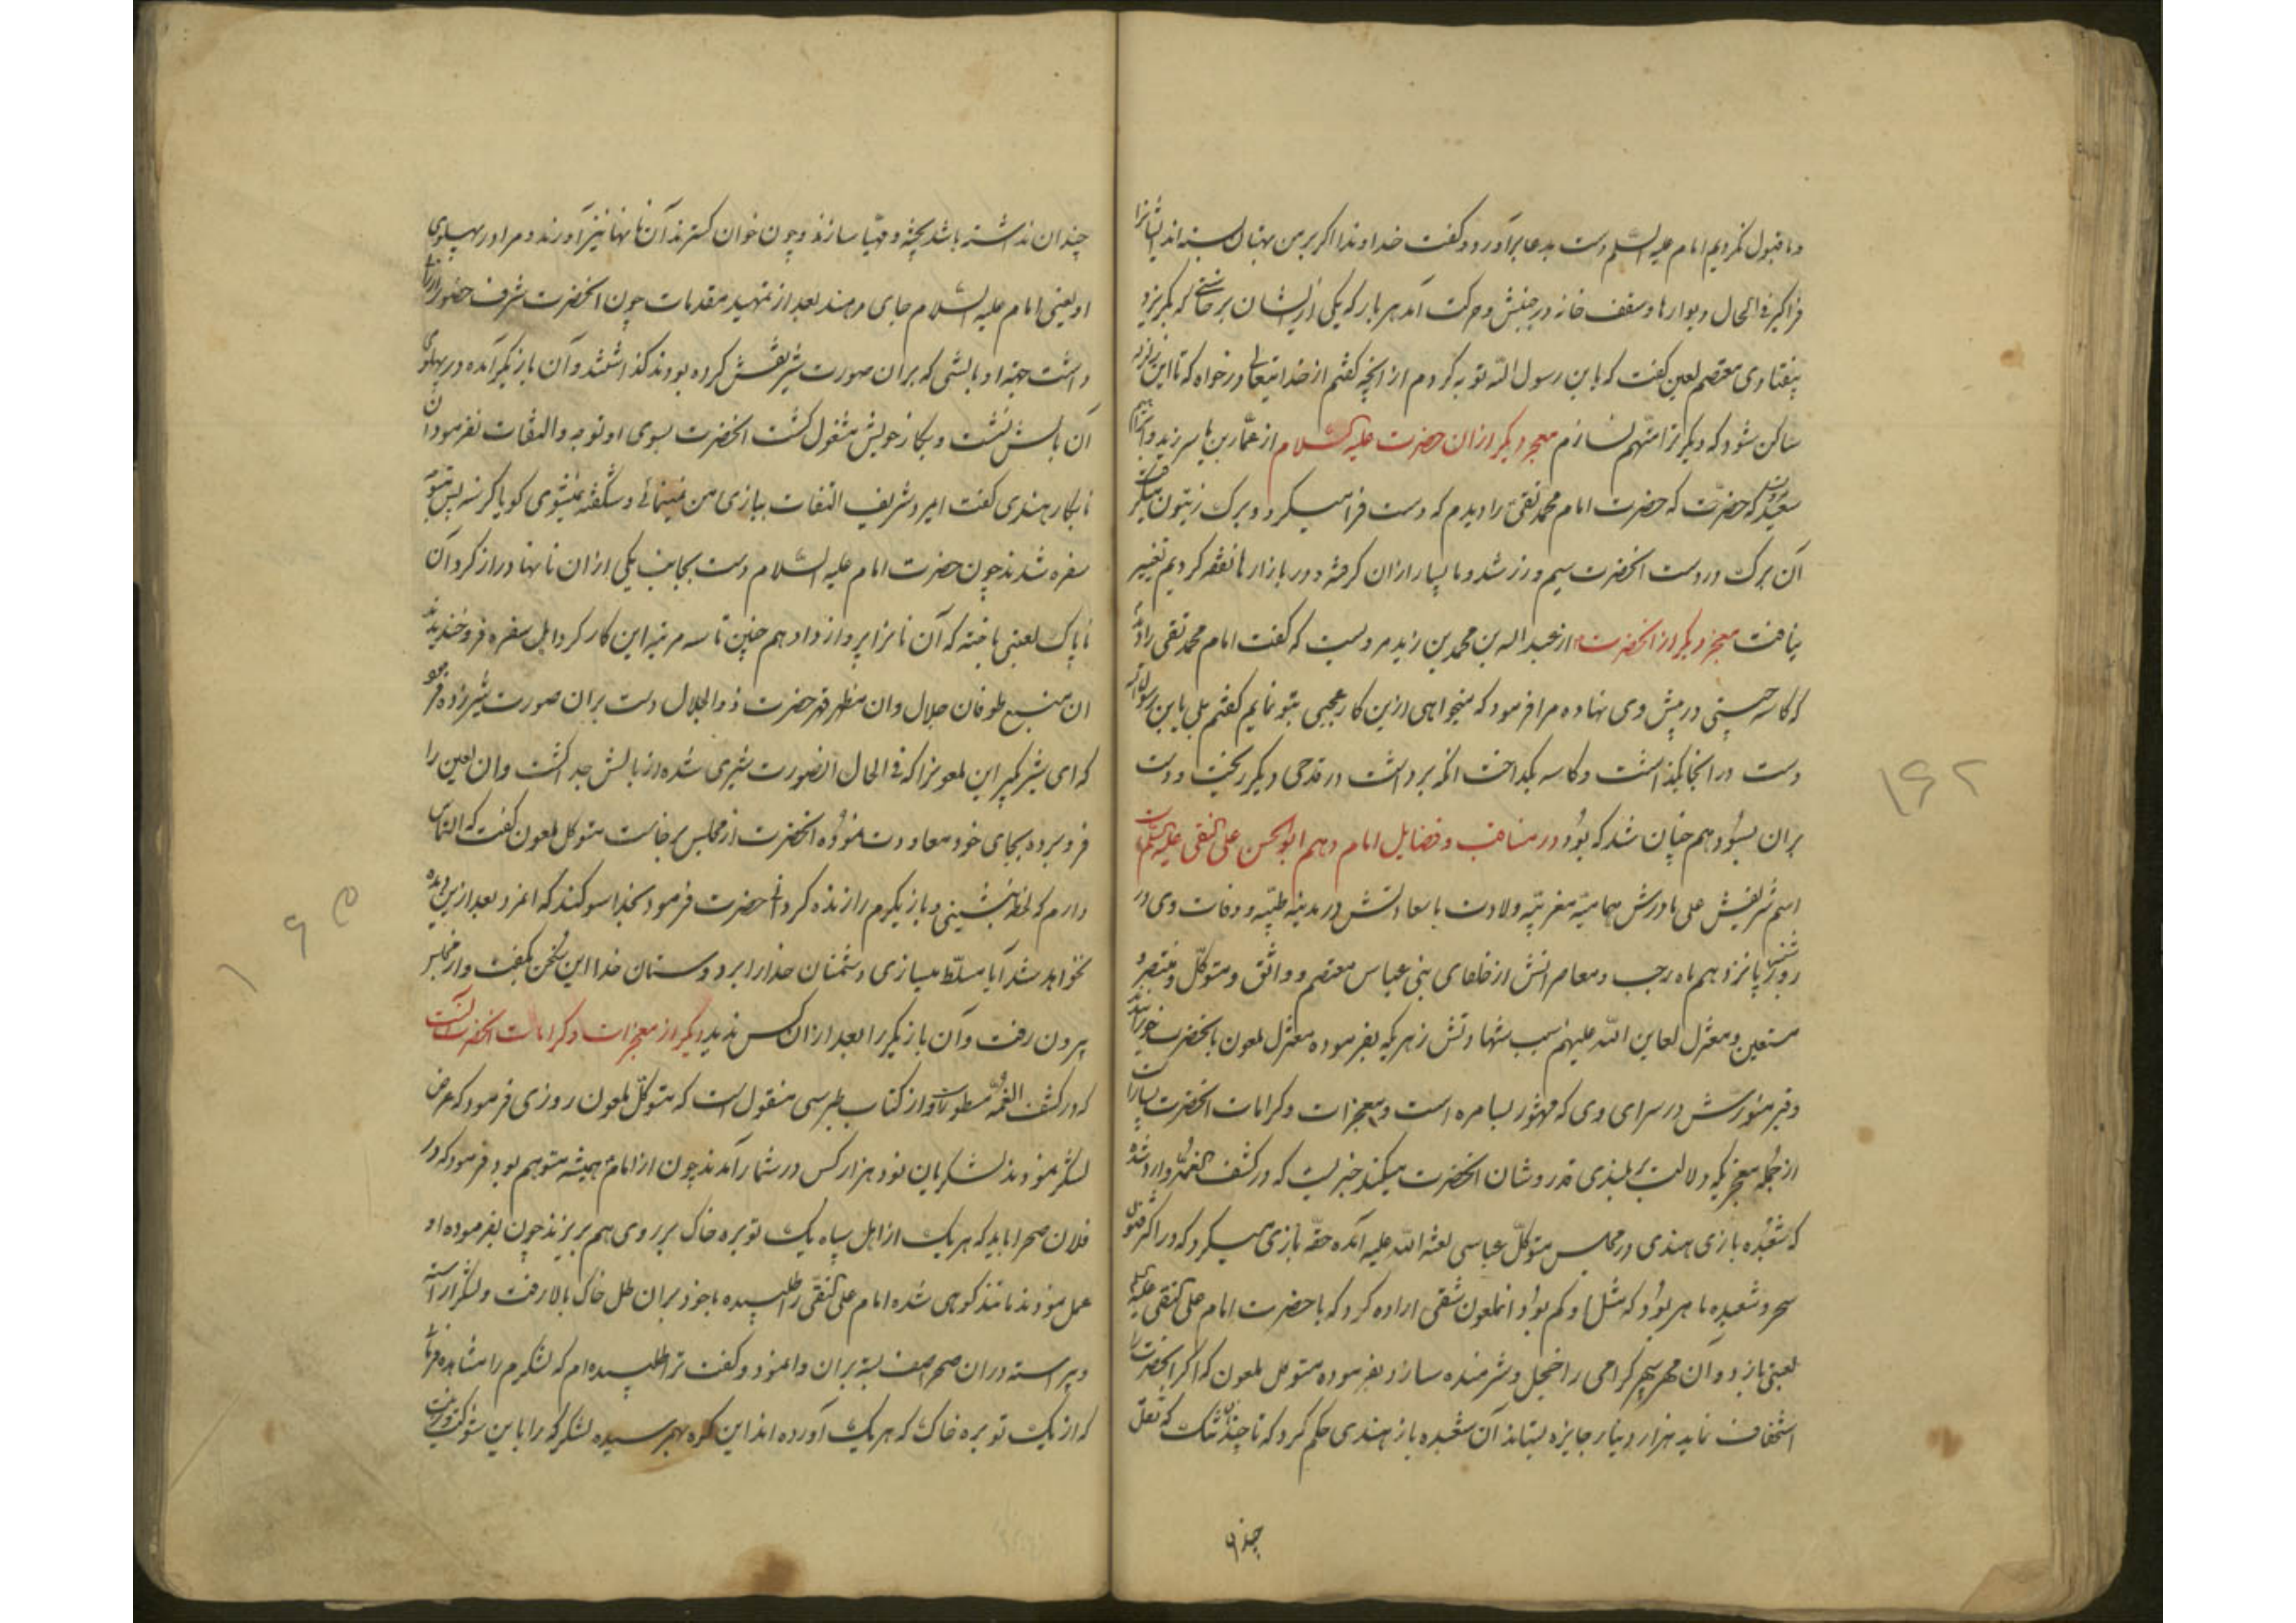 و ما قبول کردیم امام علیه السّلم دست بدعا برآورد و گفت خداوندا اکر بر من بهتان بسته اند ایشانرا
فراکیر فی الحال دیوارها و سقف خانه در جنبش و حرکت آمد هر بار که یکی از ایشان برخاستی که بکریزد
بیفتادی معتصم لعین گفت که یا بن رسول اللّه توبه کردم از آنچه گفتم از خدایتعالی درخواه که تا این زلزله
ساکن شود که دیکر ترا متهم نسازم معجز دیکر از ان حضرت علیه السّلام از عمّار بن یا سر زید و ابراهیم
سعید که حضرت امام محمد تقی را دیدم که دست فرا میکرد و برک زیتون میکرفت
آن برک در دست انحضرت سیم و زر شد و ما بسیار از ان کرفته و در بازارها نفقه کردیم تغییر
نیافت معجز دیکر از انحضرت از عبد اله بن محمد بن زید مرویست که گفت امام محمد تقی را دیدم
که کاسه چینی در پیش وی نهاده مرا فرمود که میخواهی ازین کار عجبی بتو نمایم گفتم بلی یا بن رسول اللّه
دست در انجا بگذاشت و کاسه بگداخت انکه برداشت در قدحی دیکر ریخت و دست
بران بسود هم چنان شد که بود در مناقب و فضایل امام دهم ابو الحسن علی النقی علیه السّلم
اسم شریفش علی مادرش سمانیه مغربیّه ولادت با سعادتش در مدینه طیّبه و وفات وی در
روز شنبه پانزدهم ماه رجب و معاصرانش از خلفای بنی عباس معتصم و واثق و متوکّل و منتصر و
مستعین و معتزل لعاین اللّه علیهم سبب شهادتش زهریکه بفرموده معتزل ملعون بانحضرت خورانیدند
و قبر منورش در سرای وی که مشهور بسامره است و معجزات و کرامات انحضرت بسیار است
از جمله معجزیکه دلالت بر بلندی قدر و شان انحضرت میکند خبریست که در کشف الغمّه وارد شده
که شعبده بازی هندی در مجلس متوکلّ عباسی لعنه اللّه علیه آمده حقّه بازی میکرد که در اکثر فنون
سحر و شعبده ماهر بود که مثل او کم بود و انملعون شقی اراده کرد که با حضرت امام علی النقی علیه السلم
لعبی بازد و آن مهر سپهر گرامی را خجل و شرمنده سازد بفرموده متوکل ملعون که اکر انحضرت را
استخفاف نماید هزار دینار جایزه بستاند آن شعبده باز هندی حکم کرد که تا چند نان تنک که ثقل
چندان
چندان نداشته باشد پخته و مهیّا سازند و چون خوان گسترند آن نانها نیز آورند و مرا در پهلوی
او یعنی امام علیه السّلام جای دهند بعد از تمهید مقدمات چون انحضرت شرف حضور ارزانی
داشت جهة او بالشی که بران صورت شیر نقش کرده بودند گذاشتند و آن بازیکر آمده در پهلوی
آن بالش نشست و بکار خویش مشغول گشت انحضرت بسوی او توجه و التفات نفرمود ان
نابکار هندی گفت امیر و شریف التفات ببازی من نمینمائی و شکفته نمیشوی کویا کرسنه پس متوجّه
سفره شدند چون حضرت امام علیه السّلام دست بجانب یکی از ان نانها دراز کرد آن
ناپاک لعبی باخته که آن نانرا پرواز داد هم چنین تا سه مرتبه این کار کرد و اهل سفره فرو خندیدند
ان منبع طوفان جلال و ان مظهر قهر حضرت ذو الجلال دست بران صورت شیر زده فرمود
که ای شیر بگیر این ملعونرا که فی الحال انصورت شیری شده از بالش جدا گشت و ان لعین را
فرو برده بجای خود معاودت نمود انحضرت از مجلس برخاست متوکل ملعون گفت که التماس
دارم که لحظه بنشینی و بازیکرم را زنده کردانی حضرت فرمود بخدا سوکند که اعز و بعد ازین دیده
نخواهد شد آیا مسلّط میسازی دشمنان خدا را بر دوستان خدا این سخن بگفت و از مجلس
بیرون رفت و آن بازیکر را بعد از ان کس ندید دیکر از معجزات و کرامات انحضرت آنست
که در کشف الغمّه مسطور است و از کتاب طبرسی منقول است که متوکّل ملعون روزی فرمود که عرض
لشکر نمودند لشکریان نود هزار کس در شمار آمدند چون از امام همیشه متوهم بود فرمود که در
فلان صحرا باید که هریک از اهل سپاه یک توبره خاک بر روی هم بریزند چون بفرموده او
عمل نمودند مانند کوهی شده امام علی النقی را طلبیده با خود بران طل خاک بالا رفت و لشکر آراسته
و پیراسته در ان صحرا صف بسته بران وا نمود و گفت ترا طلبیده ام که لشکرم را مشاهده فرمائی
که از یک توبره خاک که هر یک آورده اند این کوه بهم رسیده لشکر که را باین شوکت و زینت